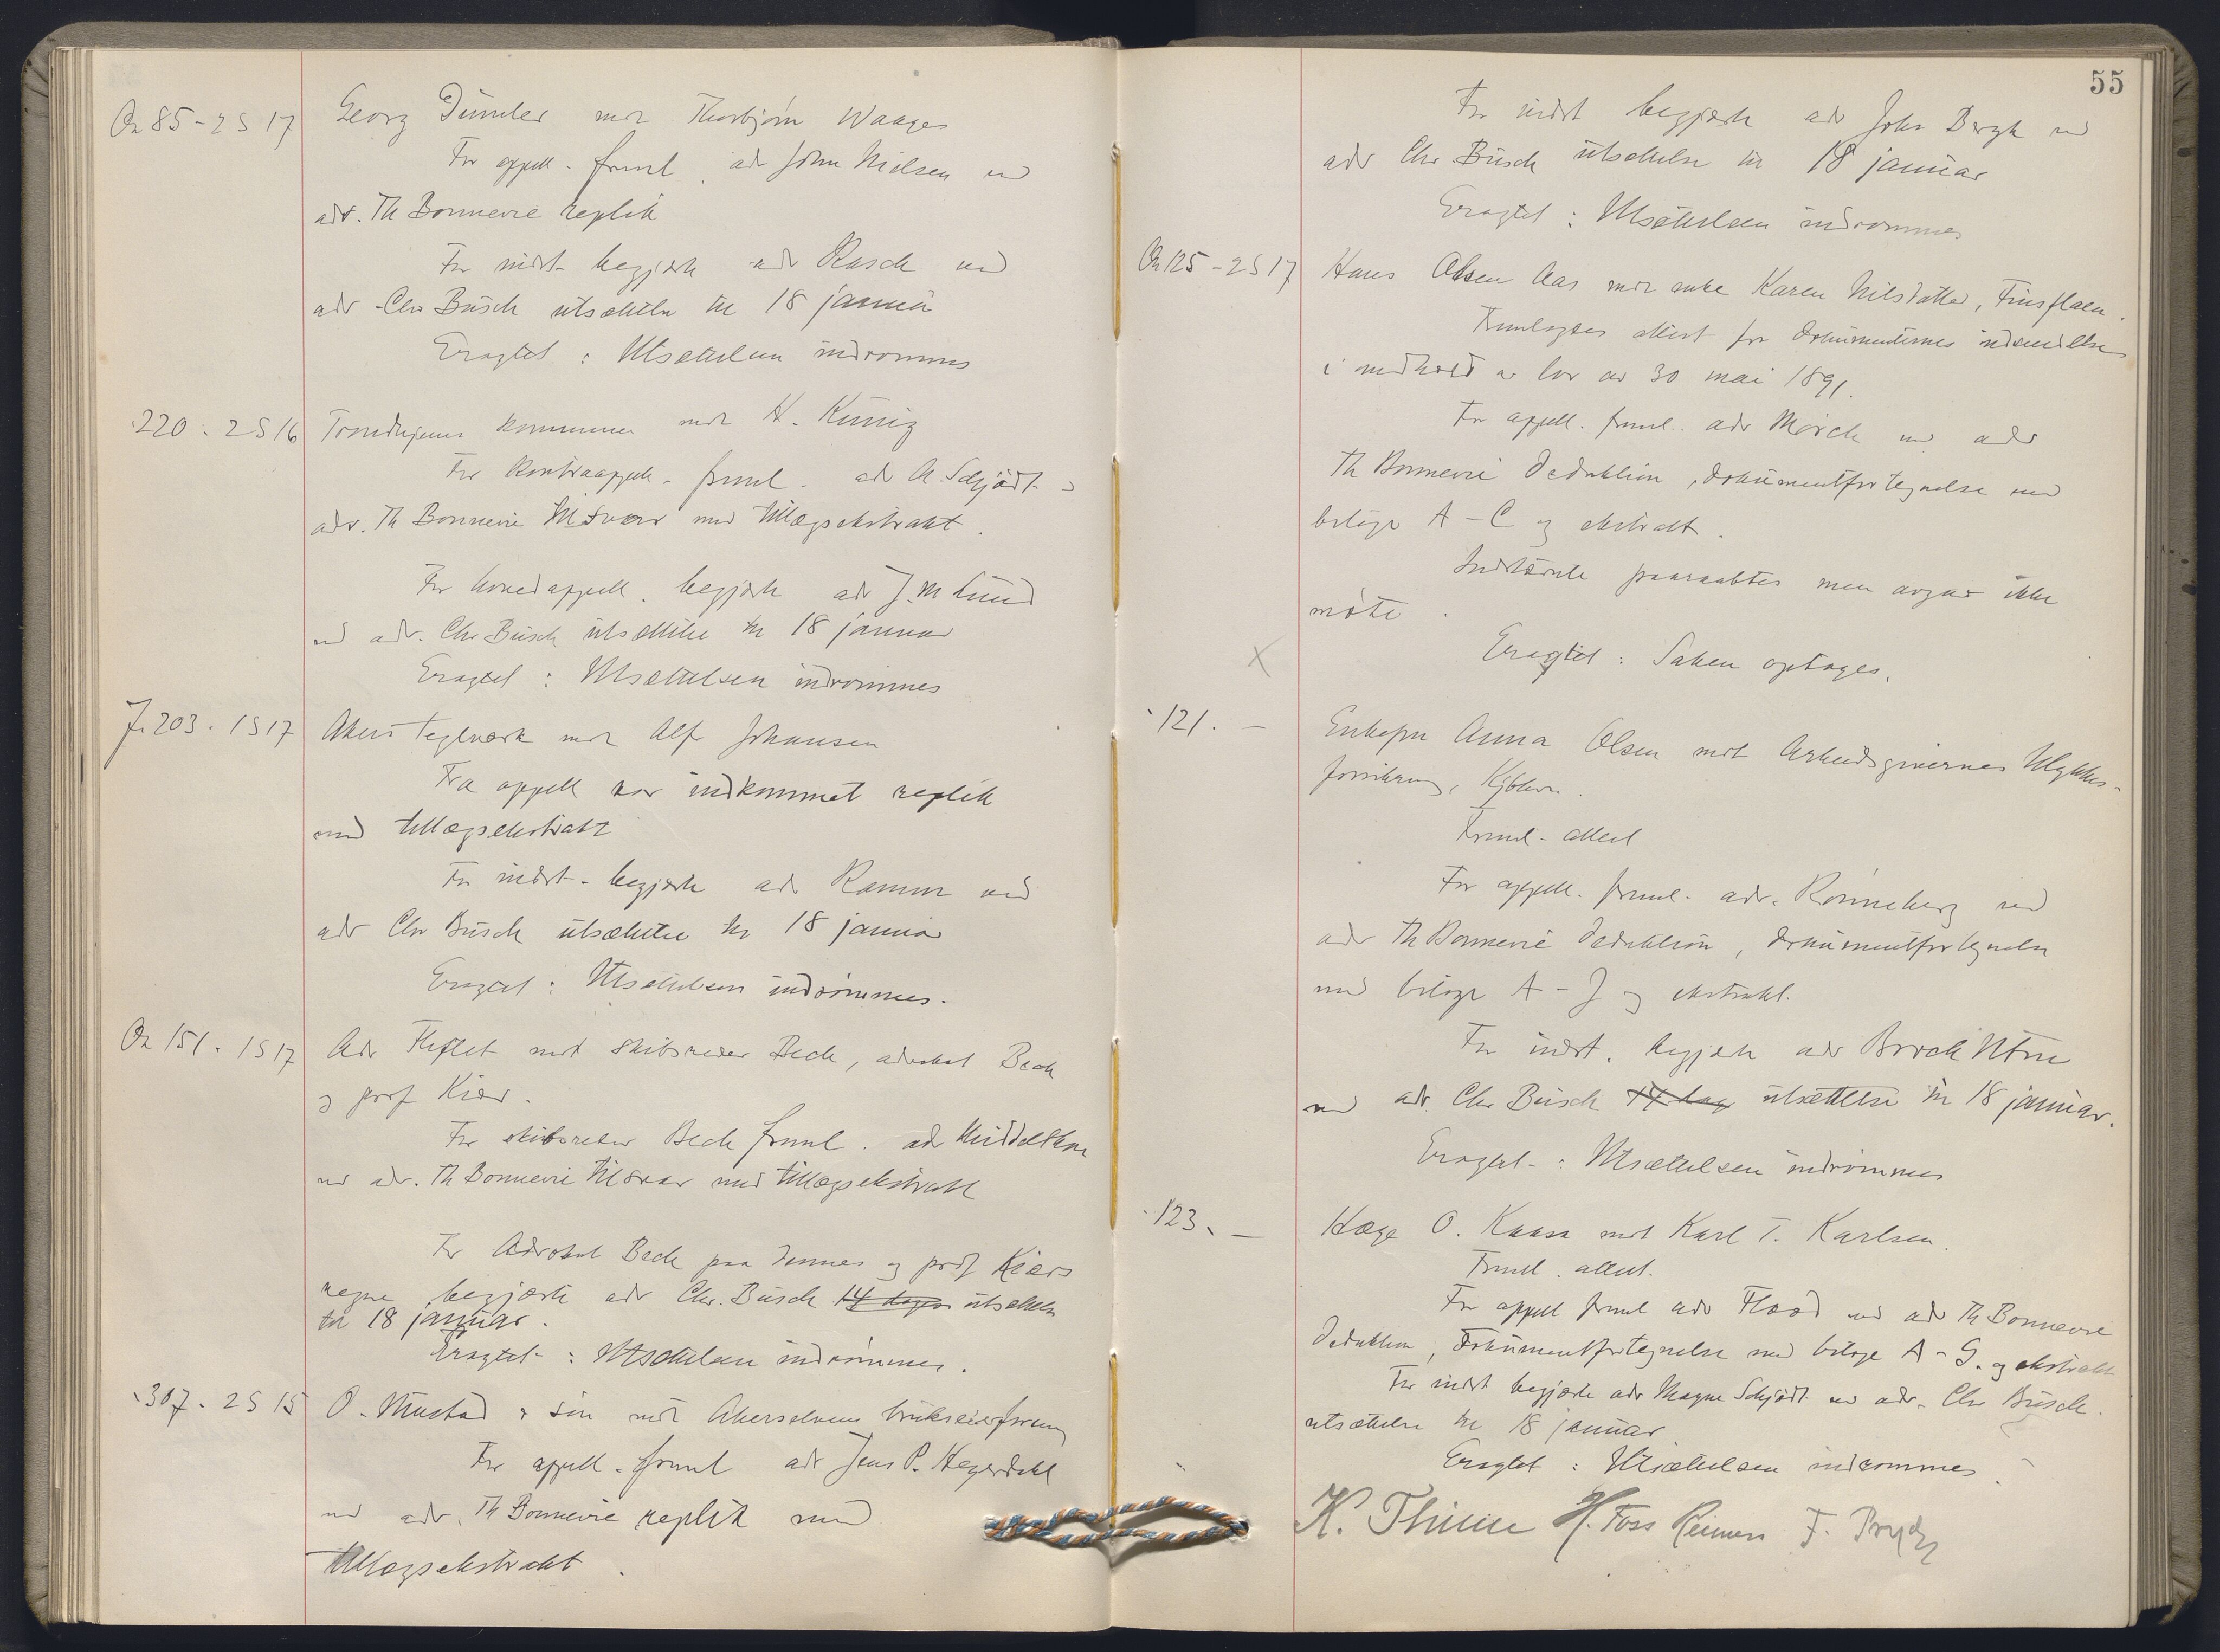 Or 85 - 2 S 17
Georg Dümler mot Thorbjørn Waages
For appell. freml. adv John Nielsen ved
adv. Th Bonnevie replik
For indst. begjærte adv Rasch ved
adv. Chr Busch utsættelse til 18 januar
Eragtet : Utsættelsen indrømmes
220 . 2 S 16
Trondhjems kommune mot H. Künig
For kontraappell. freml. adv A. Schjødt v
adv. Th Bonnevie tilsvar med tillægsekstrakt.
For hovedappell. begjærte adv J. M Lund
ved adv. Chr Busch utsættelse til 18 januar
Eragtet : Utsættelsen indrømmes
J. 203 . 1 S 17
Akers Teglværk mot Alf Johansen
Fra appell var indkommet replik
med tillægsekstrakt
For indst. begjærte adv Ramm ved
adv Chr Busch utsættelse til 18 januar
Eragtet : Utsættelsen indrømmes.
Or 151 . 1 S 17
Adv Heflet mot skibsreder Bech, advokat Bech
og prof Kiær.
For skibsreder Bech freml. adv Middelthon
ved adv. Th Bonnevie tilsvar med tillægsekstrakt
For Advokat Bech paa dennes og prof Kiærs
vegne begjærte adv Chr. Busch 14 dages utsættelse
til 18 januar.
Eragtet : Utsættelsen indrømmes.
307 . 2 S 15
O. Mustad & søn mot Akerselvens brukseierforening
For appell. freml adv Jens P. Heyerdahl
ved adv. Th Bonnevie replik med
tillægsekstrakt.
55
For indst begjærte adv John Bergh ved
adv Chr Busch utsættelse til 18 januar
Eragtet : Utsættelsen indrømmes
Or 125 - 2 S 17
Hans Olsen Aas mot enke Karen Nilsdatter, Finsflaen.
Fremlagdes attest for dokumenternes indsendelse
i medhold av lov av 30 mai 1891.
For appell. freml. adv Mørch ved adv
Th Bonnevie deduktion, dokumentfortegnelse med
bilage A - C og ekstrakt.
Indstævnte paaraabtes men avgav ikke
møte.
X
Eragtet : Saken optages.
121. -
Enkefru Anna Olsen mot Arbeidsgivernes Ulykkes-
forsikring, Kjøbhvn.
Freml. attest
For appell. freml. adv. Rønneberg ved
adv Th Bonnevie deduktion, dokumentfortegnelse
med bilage A - J og ekstrakt.
For indst. begjærte adv Brock Utne
ved adv. Chr Busch 14 dag utsættelse til 18 januar.
Eragtet : Utsættelsen indrømmes
123. -
Hæge O. Kaasa mot Karl T. Karlsen.
Freml. attest.
For appell freml adv Flood ved adv Th Bonnevie
deduktion, dokumentfortegnelse med bilage A - G. og ekstrakt
For indst begjærte adv Magne Schjødt ved adv. Chr Busch.
utsættelse til 18 januar
Eragtet : Utsættelsen indrømmes.
K. Thinn H. Foss Reimers F. Prydz